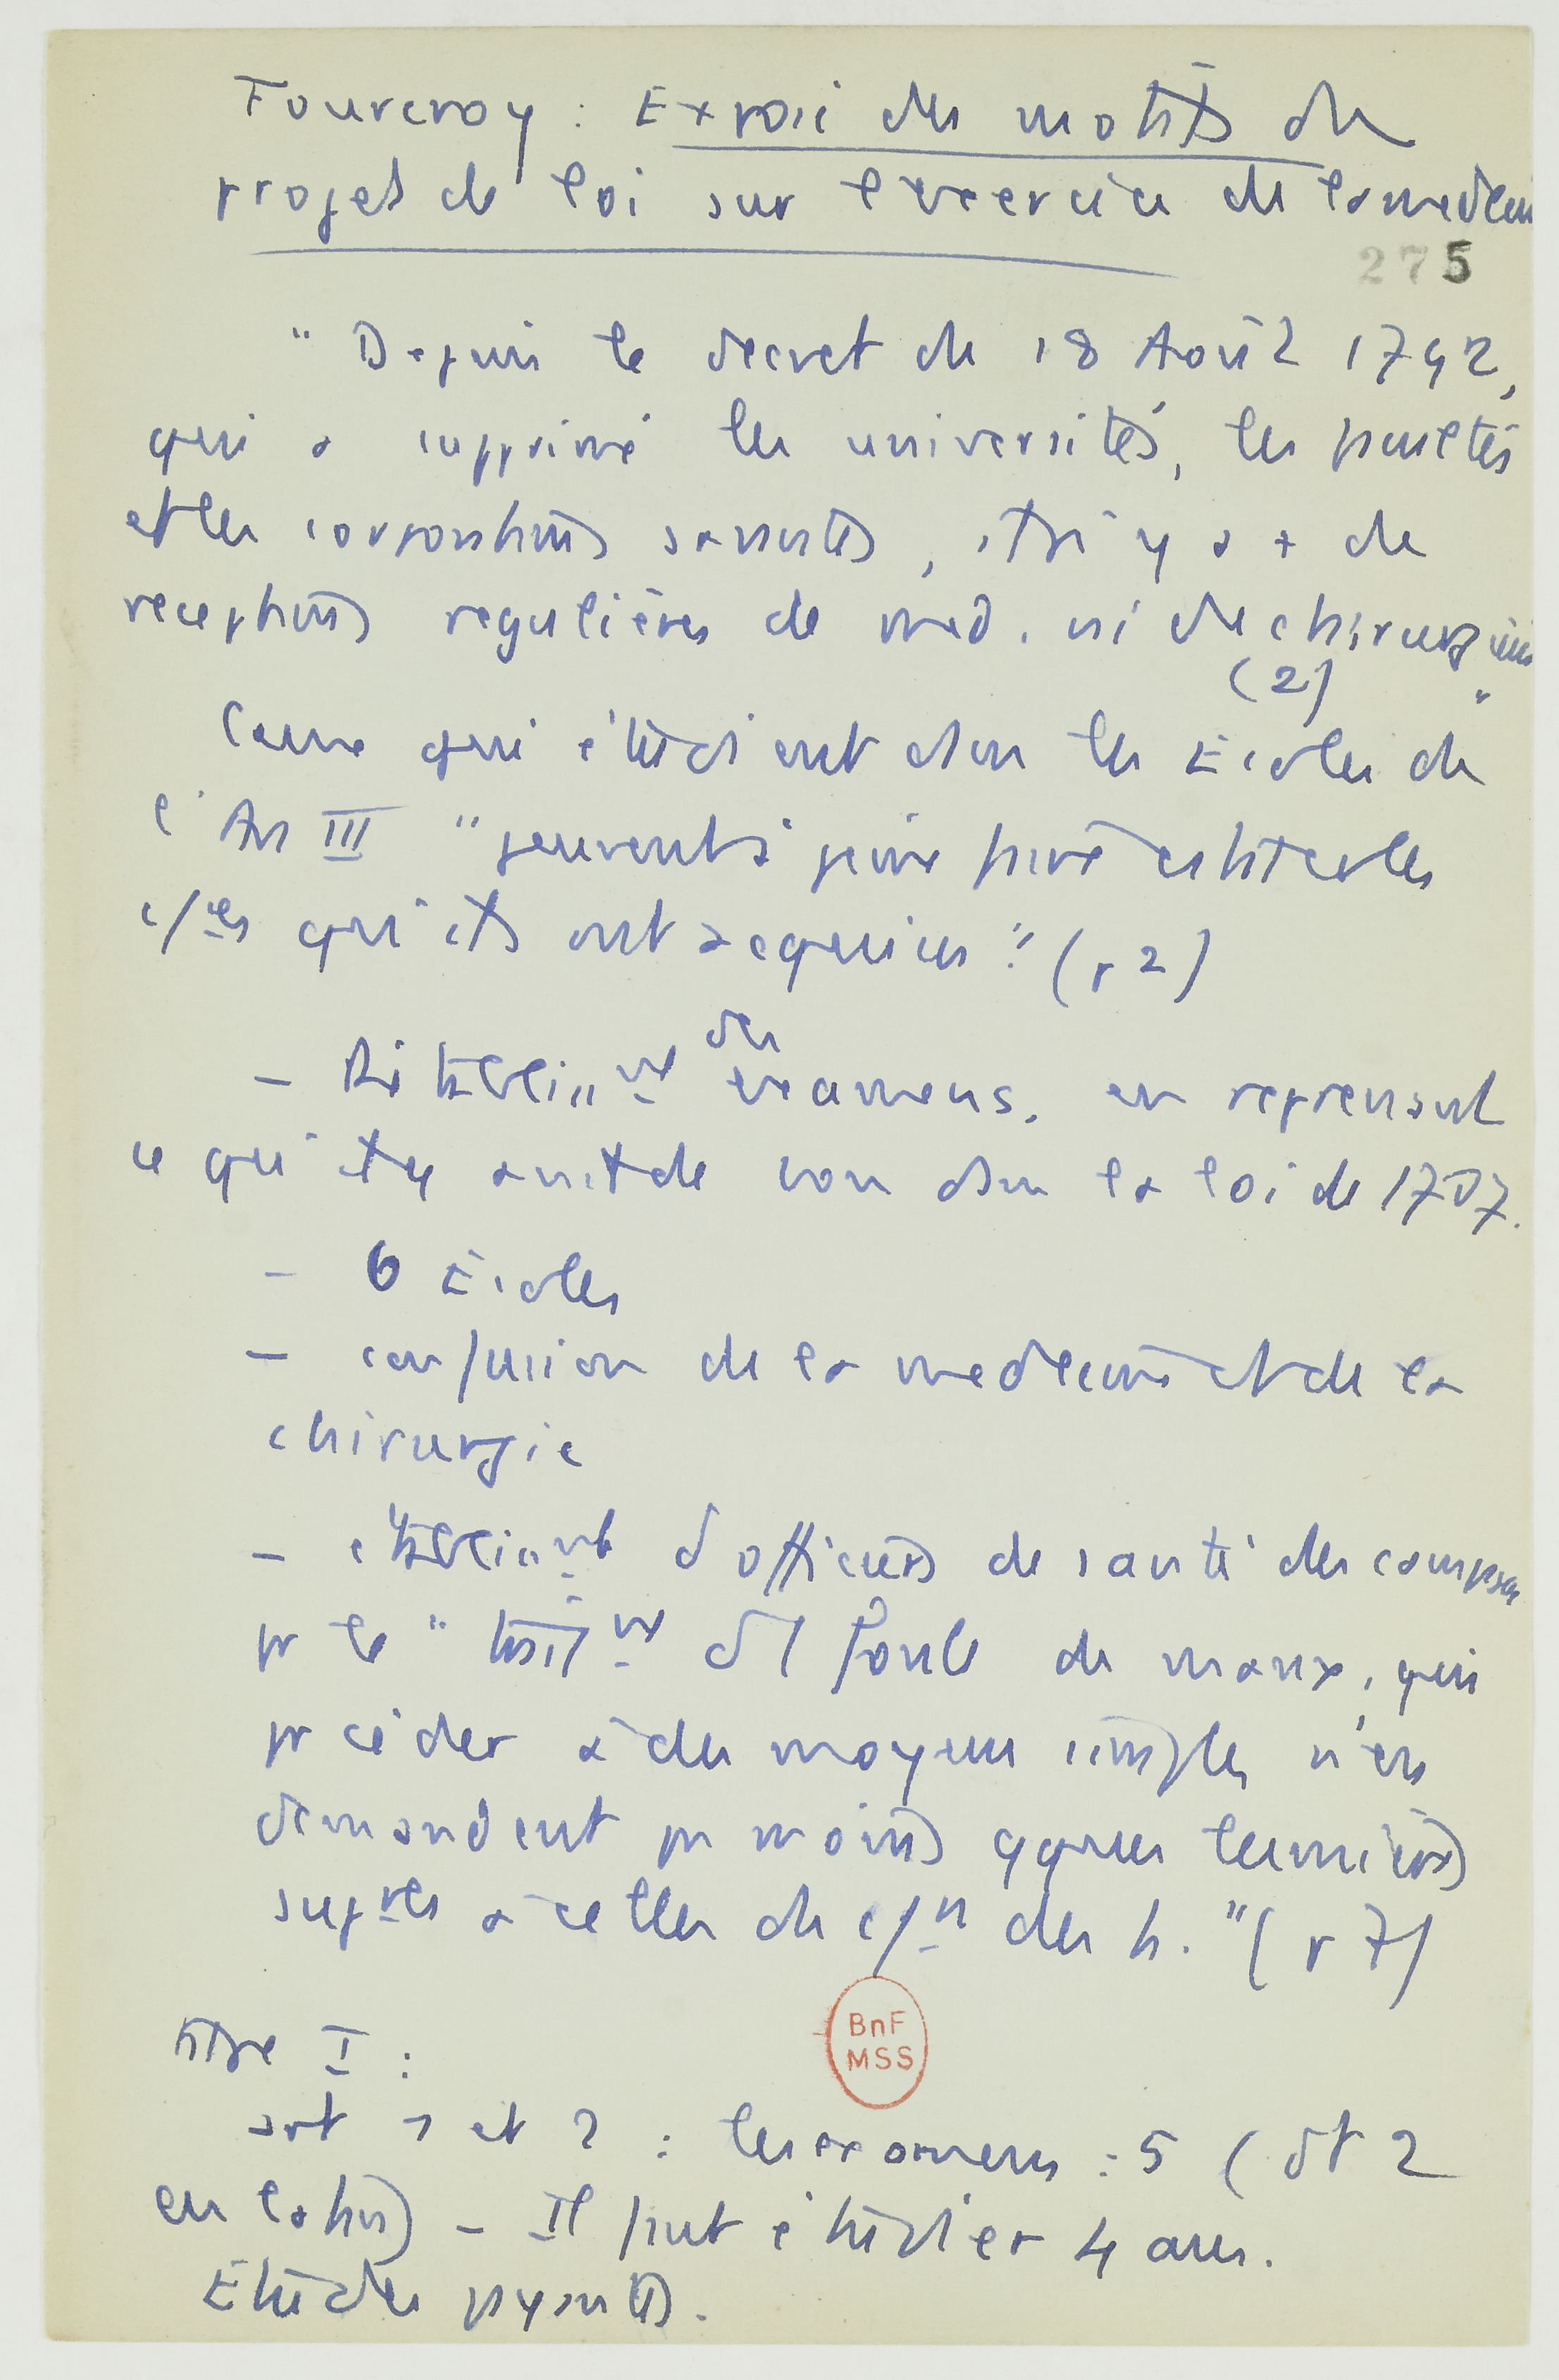 Fourcroy : Exposé des motifs du
projet de loi sur l'exercice de la médecine
275
"Depuis le décret du 18 Août 1792,
qui a supprimé les universités, les facultés
et les corporations savantes, il n'y a + de
receptions regulières de med. ni de chirurgiens"
(2)
Ceux qui étudient dans les Écoles de
l'An III "peuvent à peine faire constater les
c/ces qu'ils ont acquises" (p 2)
- Rétabliss nt des examens. en reprenant
ce qu'il y avait de bon dans la loi de 1707.
- 6 Écoles
- confusion de la medecine et de la
chirurgie
- établiss nt d'officiers de santé des campagnes
pr le "trait nt d'1 foule de maux, qui
pr céder à des moyens simples n'en
demandent pas moins qques lumières
sup res à celles du c/n des h." (p 7)
titre I :
art 1 et 2 : les examens : 5 (dt 2
en latin) - Il faut étudier 4 ans.
Études payantes.
BnF
MSS